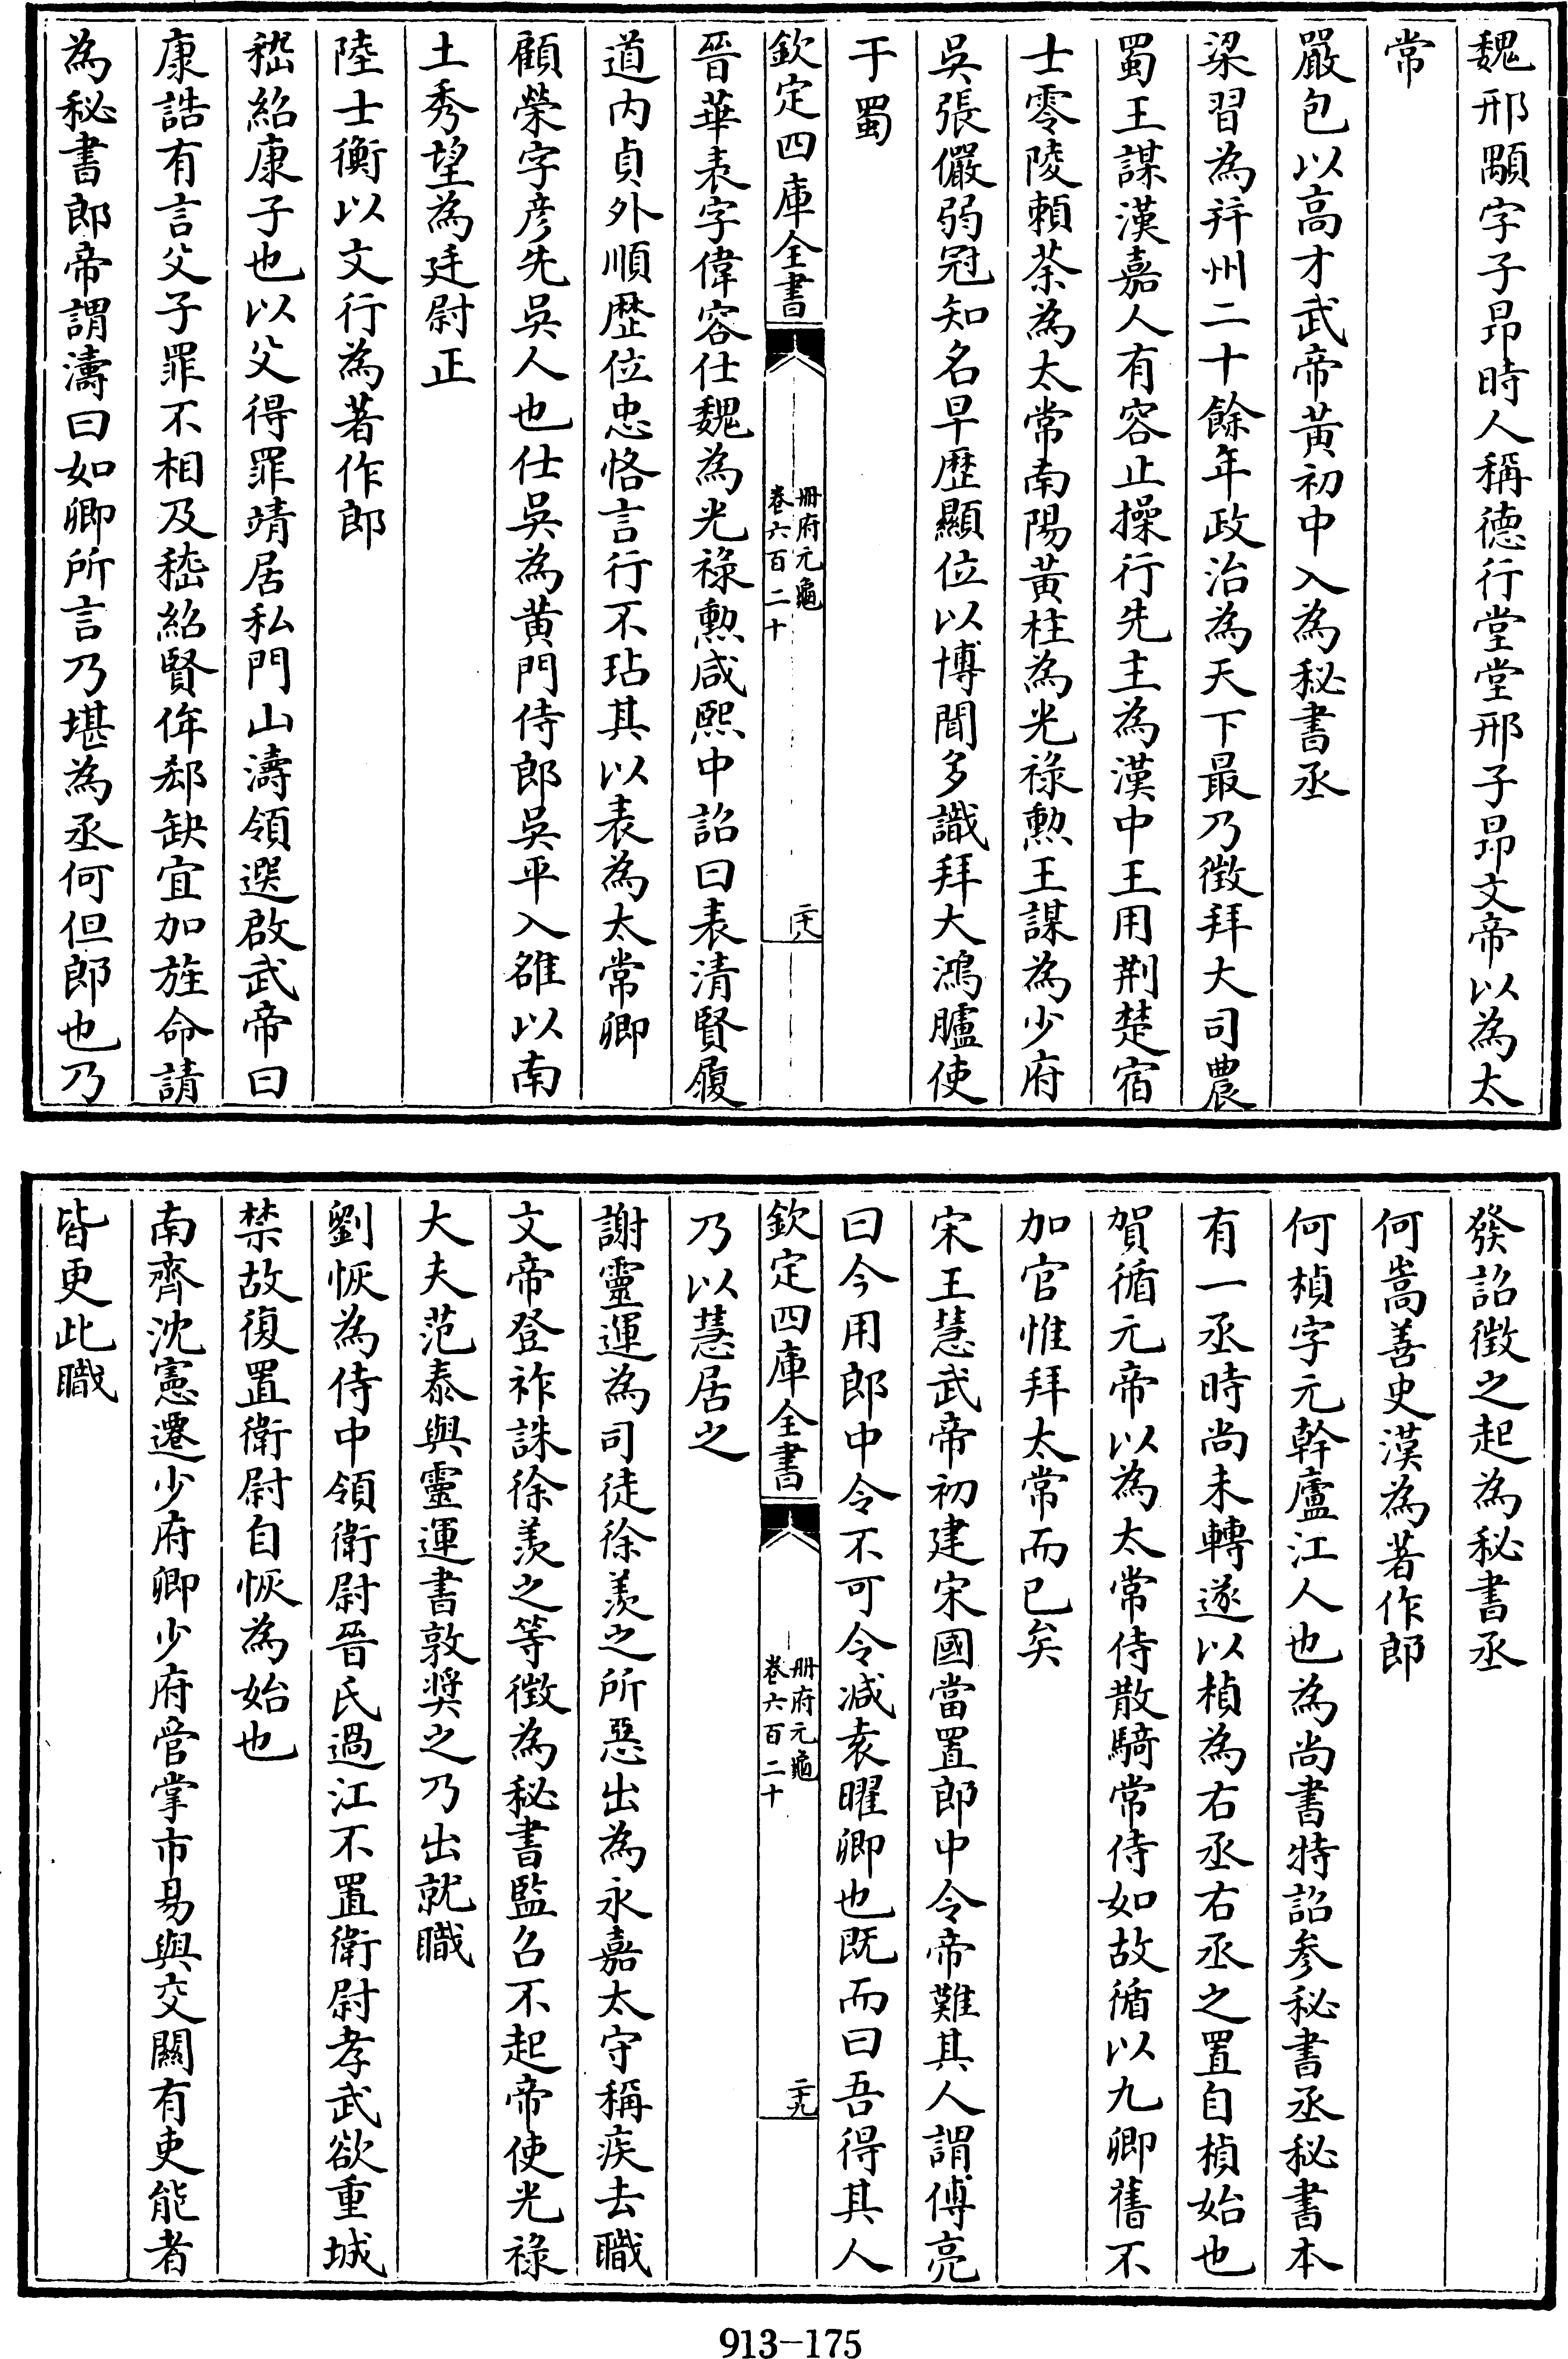 魏邢顒字子昻時人稱德行堂堂邢子昻文帝以為太
常
嚴包以高才武帝黃初中入為秘書丞
梁習為幷州二十餘年政治為天下最乃徵拜大司農
蜀王謀漢嘉人有容止操行先主為漢中王用荆楚宿
士零陵賴荼為太常南陽黃柱為光祿勲王謀為少府
吳張儼弱冠知名早歴顯位以博聞多識拜大鴻臚使
于蜀
欽定四庫全書
冊府元龜
卷六百二十
二十八
晉華表字偉容仕魏為光祿勲咸熙中詔曰表清賢履
道内貞外順歴位忠恪言行不玷其以表為太常卿
顧榮字彦先吳人也仕吳為黄門侍郎吳平入雒以南
土秀望為廷尉正
陸士衡以文行為著作郎
嵇紹康子也以父得罪靖居私門山濤領選啟武帝曰
康誥有言父子罪不相及嵇紹賢侔郄缺宜加旌命請
為秘書郎帝謂濤曰如卿所言乃堪為丞何但郎也乃
發詔徵之起為秘書丞
何嵩善史漢為著作郎
何楨字元幹廬江人也為尚書特詔参秘書丞秘書本
有一丞時尚未轉遂以楨為右丞右丞之置自楨始也
賀循元帝以為太常侍散騎常侍如故循以九卿舊不
加官惟拜太常而已矣
宋王慧武帝初建宋國當置郎中令帝難其人謂傅亮
曰今用郎中令不可令减袁曜卿也既而曰吾得其人
欽定四庫全書
冊府元龜
卷六百二十
二十九
乃以慧居之
謝靈運為司徒徐羡之所惡出為永嘉太守稱疾去職
文帝登祚誅徐羡之等徵為秘書監召不起帝使光祿
大夫范泰與靈運書敦奨之乃出就職
劉恢為侍中領衛尉晉氏過江不置衛尉孝武欲重城
禁故復置衛尉自恢為始也
南齊沈憲遷少府卿少府管掌市易與交關有吏能者
皆更此職
913-175